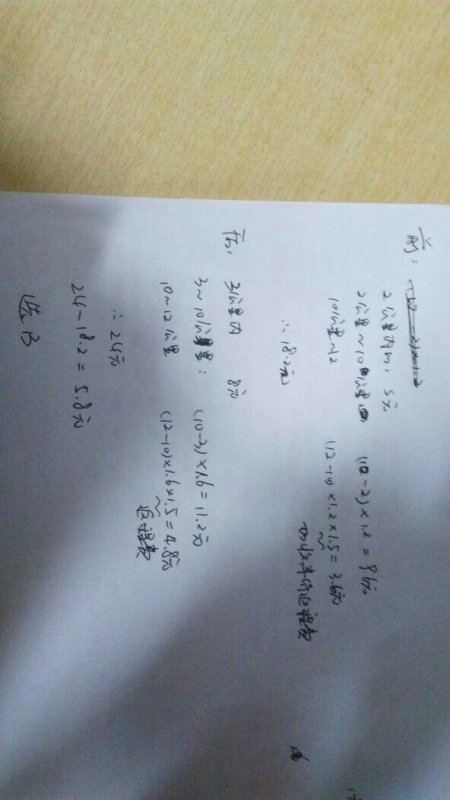 前：
2公里内, 5元
2公里~10公里 (10-2)×1.2=9.6元
10公里~12 (12-10)×1.2×1.5=3.6元
∴ 18.2元
后, 3公里内 8元
3~10公里: (10-3)×1.6=11.2元
10~12公里 (12-10)×1.6×1.5=4.8元
返程费
∴ 24元
24-18.2=5.8元
选B